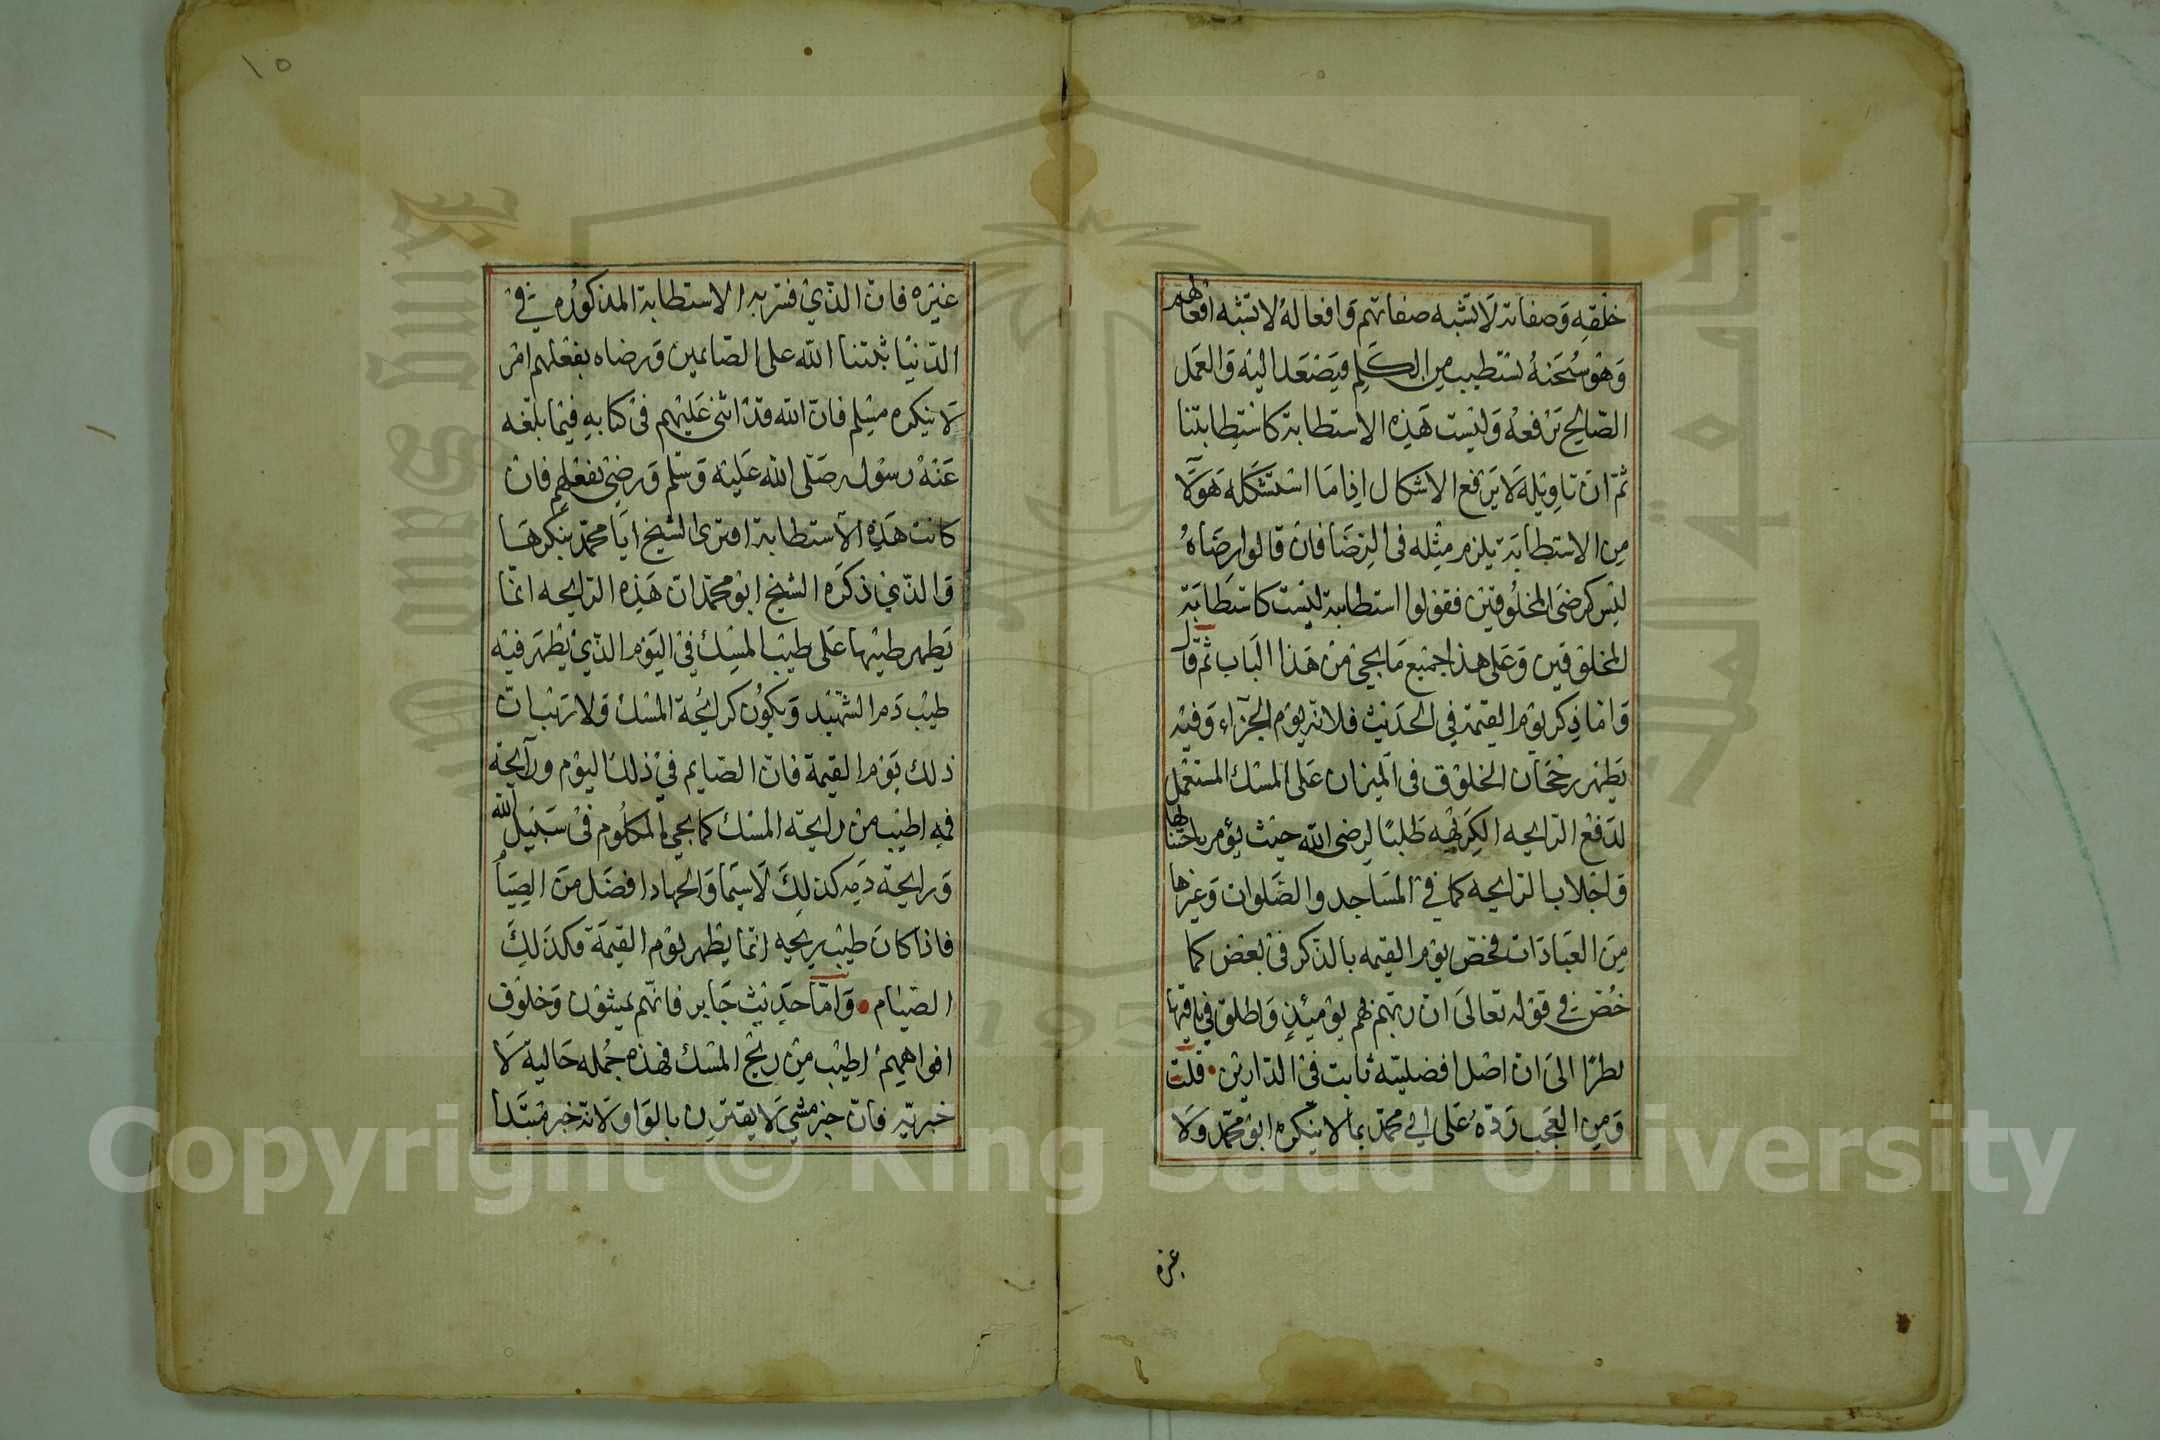 خلقه وصفاته لا تشبه صفاتهم وافعاله لا تشبه افعالهم
وهو سبحنه يستطيب من الكلم فيصعد اليه والعمل
الصالح يرفعه وليست هذه الاستطابة كاستطابتنا
ثم ان تاويله لا يرفع الاشكال اذ ما استشكله هولا
من الاستطابة يلزم مثله في الرضا فان قالوا رضاه
ليس كرضى المخلوقين فقولوا استطابة ليست كاستطابة
المخلوقين وعلى هذا جميع ما يجي من هذا الباب ثم قال
واما ذكر يوم القيمة في الحديث فلانه يوم الجزاء وفيه
يظهر رجحان الخلوف في الميزان على المسك المستعمل
لدفع الرايحه الكريهه طلبا لرضى الله حيث يؤمر باجتنابها
واجلاب الرايحه كما في المساجد والصلوات وغيرها
من العبادات فخص يوم القيمه بالذكر في بعض كما
خص في قوله تعالى ان ربهم بهم يومئذ واطلق في باقيها
نظرا الى ان اصل افضليته ثابت في الدارين • قلت
ومن العجب رده على ابي محمد بما لا ينكره ابو محمد ولا
غيره
١٥
غيره فان الذي فسر به الاستطابة المذكوره في
الدنيا بثنا الله على الصايمين ورضاه بفعلهم امر
لا ينكره مسلم فان الله قد اثنى عليهم في كتابه فيما بلغه
عنه رسوله صلى الله عليه وسلم ورضي بفعلهم فان
كانت هذه الاستطابة افترى الشيخ ابا محمد ينكرها
والذي ذكره الشيخ ابو محمد ان هذه الرايحه انما
يظهر طيبها على طيب المسك في اليوم الذي يظهر فيه
طيب دم الشهيد ويكون كرايحة المسك ولا ريب ان
ذلك يوم القيمة فان الصايم في ذلك اليوم ورايحة
فيه اطيب من رايحة المسك كما يجي المكلوم في سبيل الله
ورايحة دمه كذلك لا سيما والجهاد افضل من الصيام
فاذا كان طيب ريحه انما يظهر يوم القيمة فكذلك
الصيام • واما حديث جابر فانهم يمسون وخلوف
افواههم اطيب من ريح المسك فهذه جمله حالية لا
خبريه فان خبر يمسي لا يقترن بالواو لانه خبر مبتدا
Copyright © King Saud University
1957